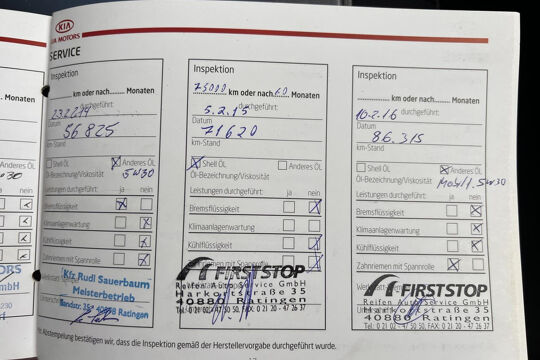 KIA
KIA MOTORS
SERVICE
Inspektion
km oder nach........ Monaten
23.2.14 durchgeführt:
Datum
56825
km-Stand
Shell Öl Anderes Öl
5W30
Öl-Bezeichnung/Viskosität
Leistungen durchgeführt: ja nein
Bremsflüssigkeit
Klimaanlagenwartung
Kühlflüssigkeit
Zahnriemen mit Spannrolle
Kfz Rudi Sauerbaum
Meisterbetrieb
40948 Ratingen
Inspektion
75000 km oder nach 60 Monaten
durchgeführt:
5.2.15
Datum
71620
km-Stand
Shell Öl Anderes Öl
Öl-Bezeichnung/Viskosität
Leistungen durchgeführt: ja nein
Bremsflüssigkeit
Klimaanlagenwartung
Kühlflüssigkeit
Zahnriemen mit Spannrolle
FIRST STOP
Reifen Auto Service GmbH
Harkortstraße 35
40880 Ratingen
Tel.: 0 21 02 - 47 50 50, FAX: 0 21 20 - 47 26 37
Inspektion
km oder nach........ Monaten
10.2.16 durchgeführt:
Datum
86.315
km-Stand
Shell Öl Anderes Öl
Öl-Bezeichnung/Viskosität
Mobil 5W30
Leistungen durchgeführt: ja nein
Bremsflüssigkeit
Klimaanlagenwartung
Kühlflüssigkeit
Zahnriemen mit Spannrolle
FIRST STOP
Reifen Auto Service GmbH
Harkortstraße 35
40880 Ratingen
Tel.: 0 21 02 - 47 50 50, FAX: 0 21 20 - 47 26 37
Abstempelung bestätigen wir, dass die Inspektion gemäß der Herstellervorgabe durchgeführt wurde.